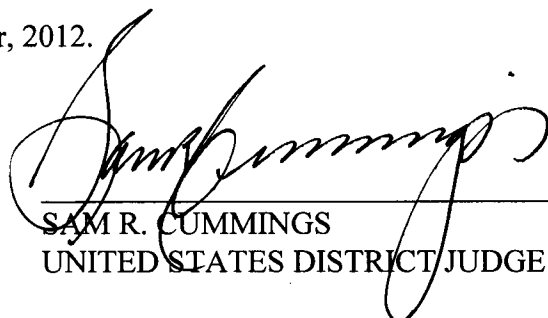 r, 2012.
Sam R Cummings
SAM R. CUMMINGS
UNITED STATES DISTRICT JUDGE